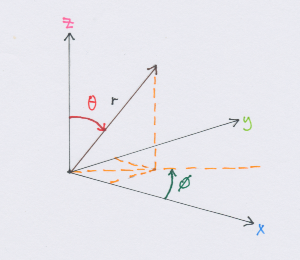 z
θ
r
y
φ
x